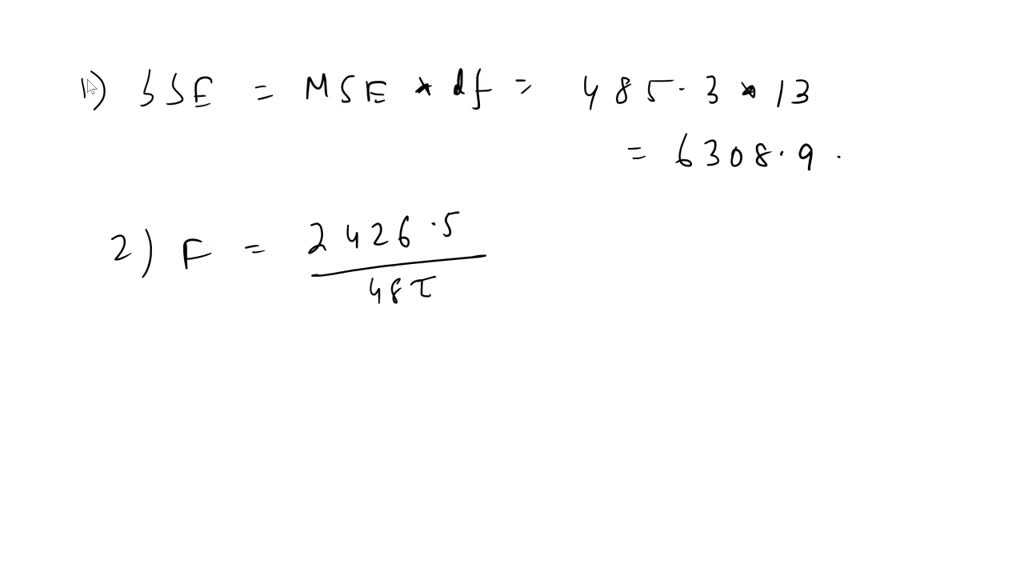 1) SSE = MSE * df = 485.3 * 13
= 6308.9.
2) F = 2426.5
485